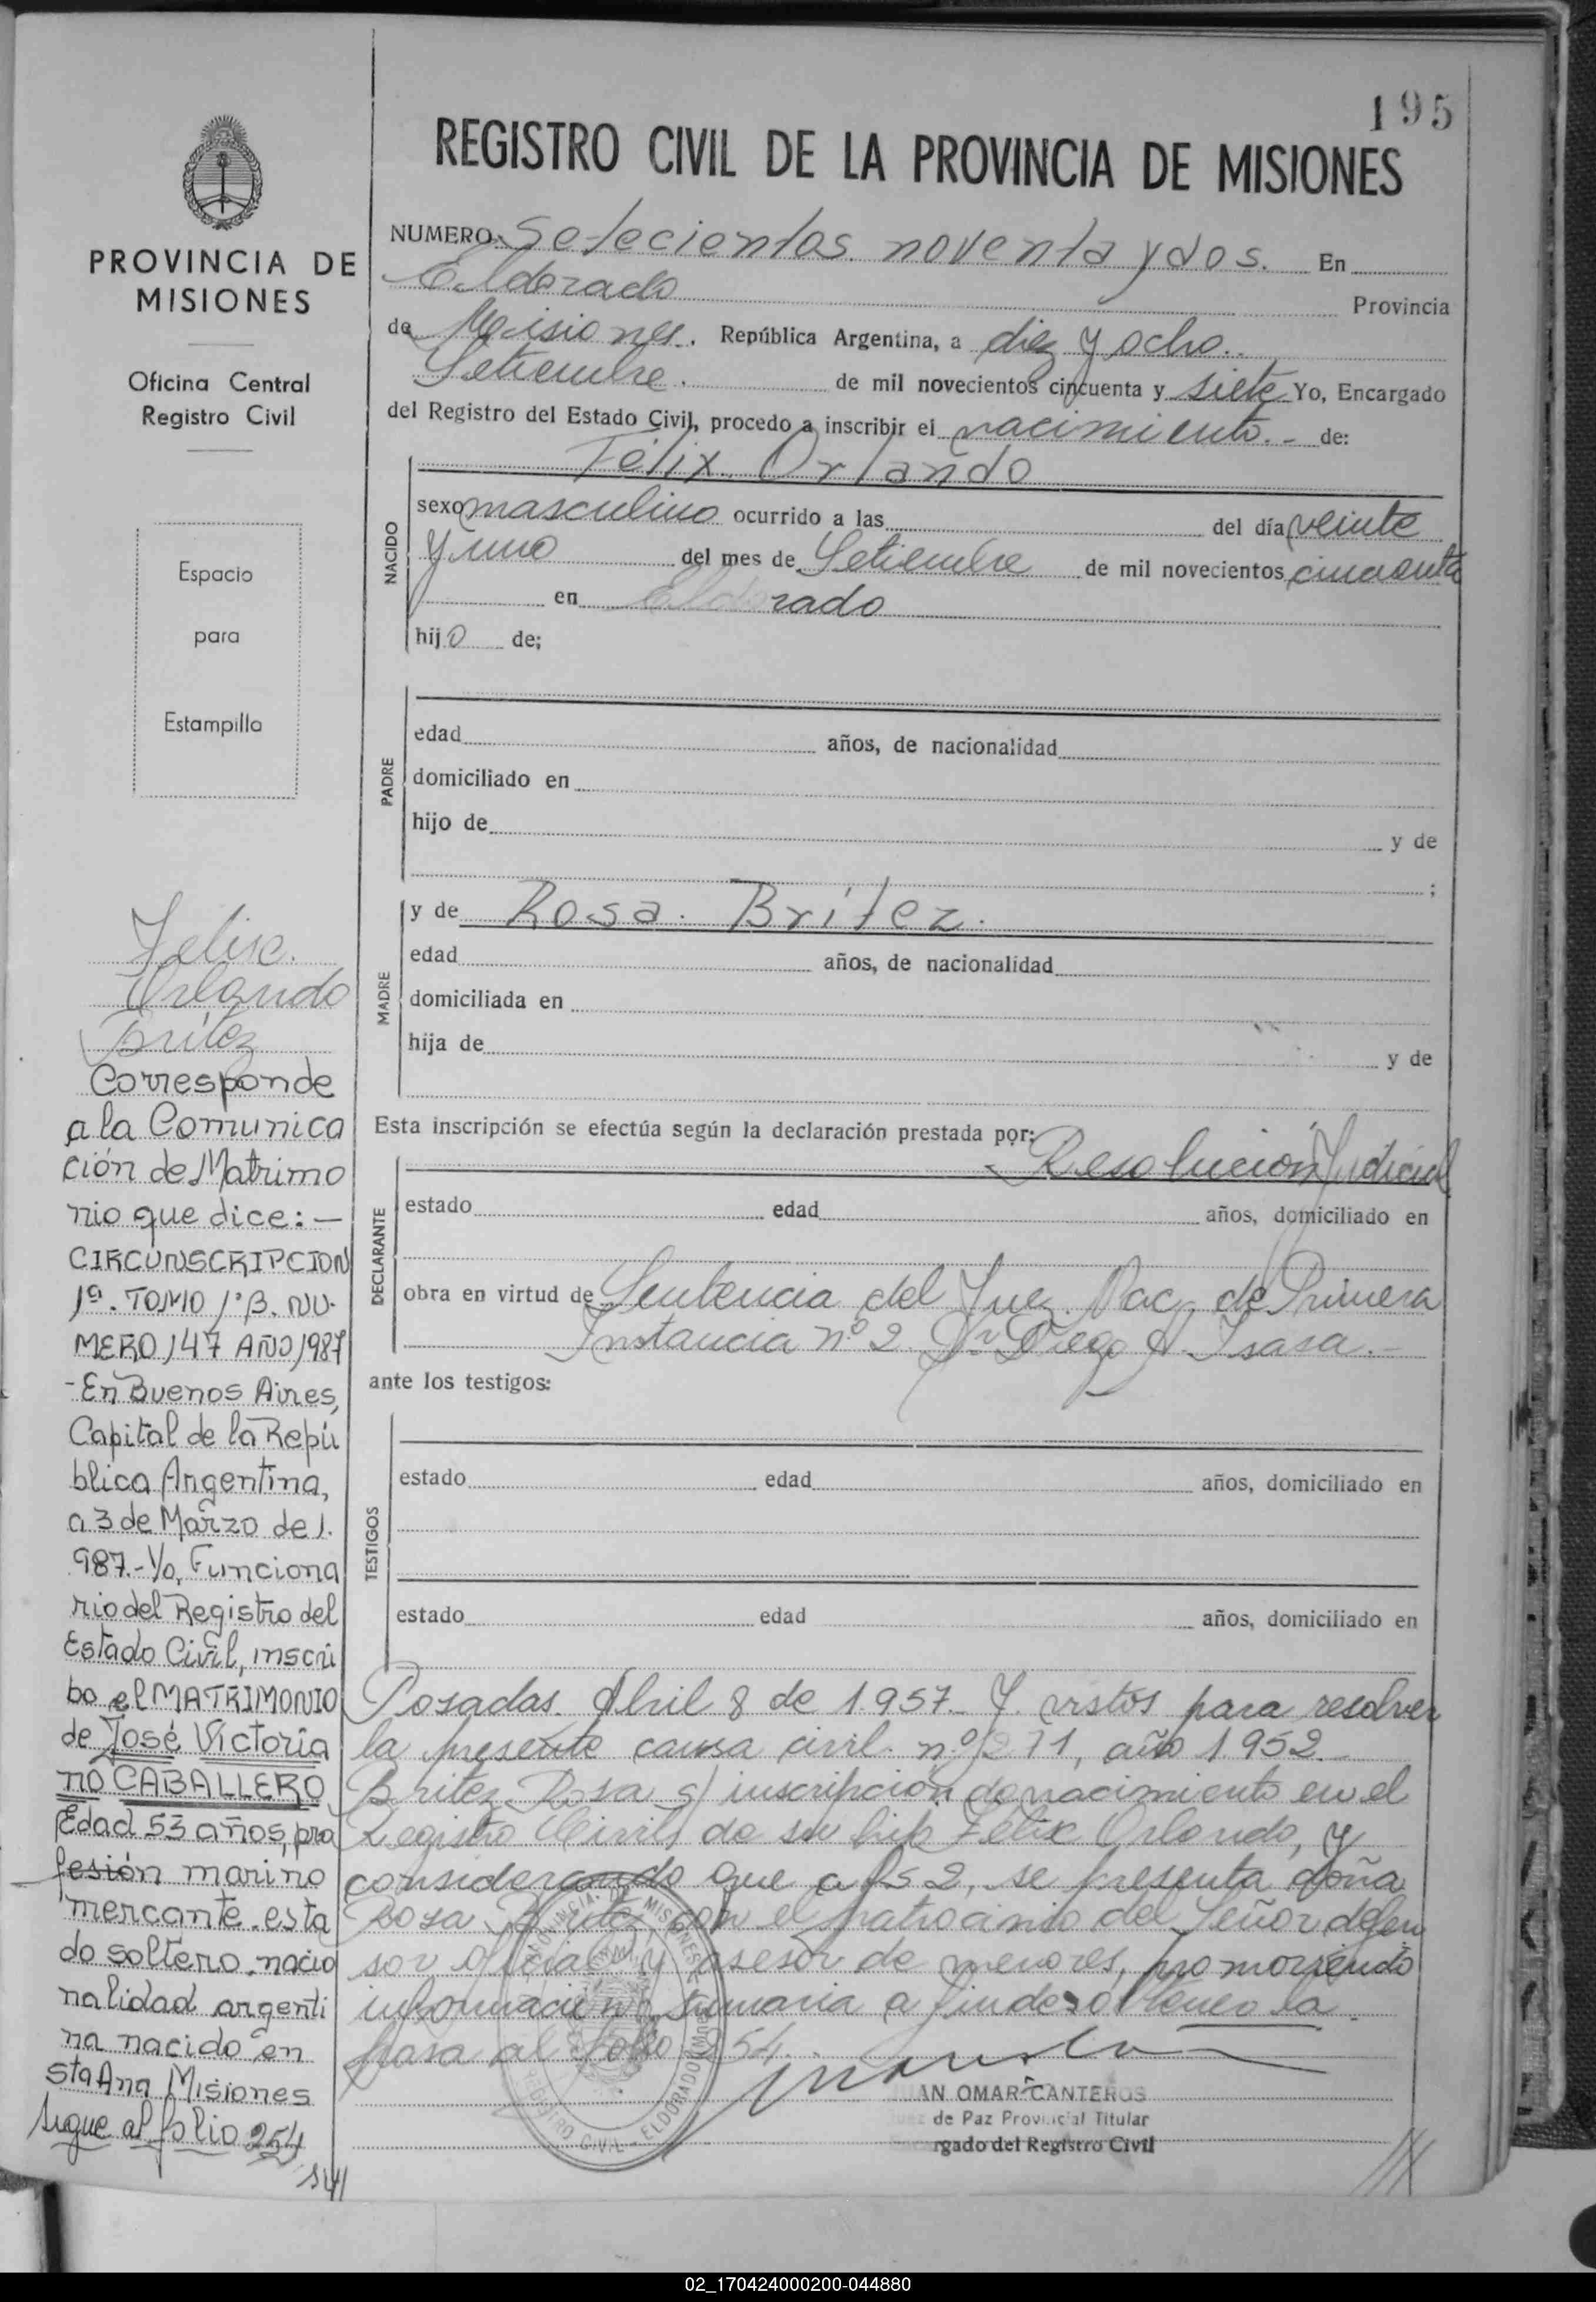 195
REGISTRO CIVIL DE LA PROVINCIA DE MISIONES
PROVINCIA DE
MISIONES
Oficina Central
Registro Civil
Espacio
para
Estampilla
NUMERO Setecientos noventa y dos. En
Eldorado Provincia
de Misiones. República Argentina, a diez y ocho..
Setiembre. de mil novecientos cincuenta y siete Yo, Encargado
del Registro del Estado Civil, procedo a inscribir el nacimiento.- de:
NACIDO
Félix Orlando
sexo masculino ocurrido a las del día veinte
y uno del mes de Setiembre de mil novecientos cincuenta
en Eldorado
hijo de;
PADRE
edad años, de nacionalidad
domiciliado en
hijo de y de
;
MADRE
y de Rosa. Brítez.
edad años, de nacionalidad
domiciliada en
hija de y de
Esta inscripción se efectúa según la declaración prestada por:
DECLARANTE
Resolución Judicial
estado edad años, domiciliado en
obra en virtud de Sentencia del Juez Nac. de Primera
Instancia nº 2 Dr Diego A. Isasa.-
ante los testigos:
TESTIGOS
estado edad años, domiciliado en
estado edad años, domiciliado en
Posadas. Abril 8 de 1.957. Y vistos para resolver
la presente causa civil nº 271, año 1.952.
Britez Rosa s/ inscripción de nacimiento en el
Registro Civil, de su hijo Félix Orlando, y
considerando que a fs 2, se presenta doña
Rosa Britez con el patrocinio del Señor defen
sor oficial y asesor de menores, promoviendo
información sumaria a fin de la
pasa al folio 254.
JUAN OMAR CANTEROS
Juez de Paz Provincial Titular
Encargado del Registro Civil
PROVINCIA DE MISIONES
REGISTRO CIVIL - ELDORADO
Felix
Orlando
Brítez
Corresponde
a la Comunica
ción de Matrimo
nio que dice: -
CIRCUNSCRIPCION
1ª. TOMO 1º B. NU-
MERO 147 AÑO 1987
-En Buenos Aires,
Capital de la Repú
blica Argentina,
a 3 de Marzo de 1.
987.- Yo, Funciona
rio del Registro del
Estado Civil, inscri
bo el MATRIMONIO
de José Victoria
no CABALLERO
Edad 53 años, pro
fesión marino
mercante. esta
do soltero. nacio
nalidad argenti
na nacido en
Sta Ana Misiones
sigue al folio 254
02_170424000200-044880